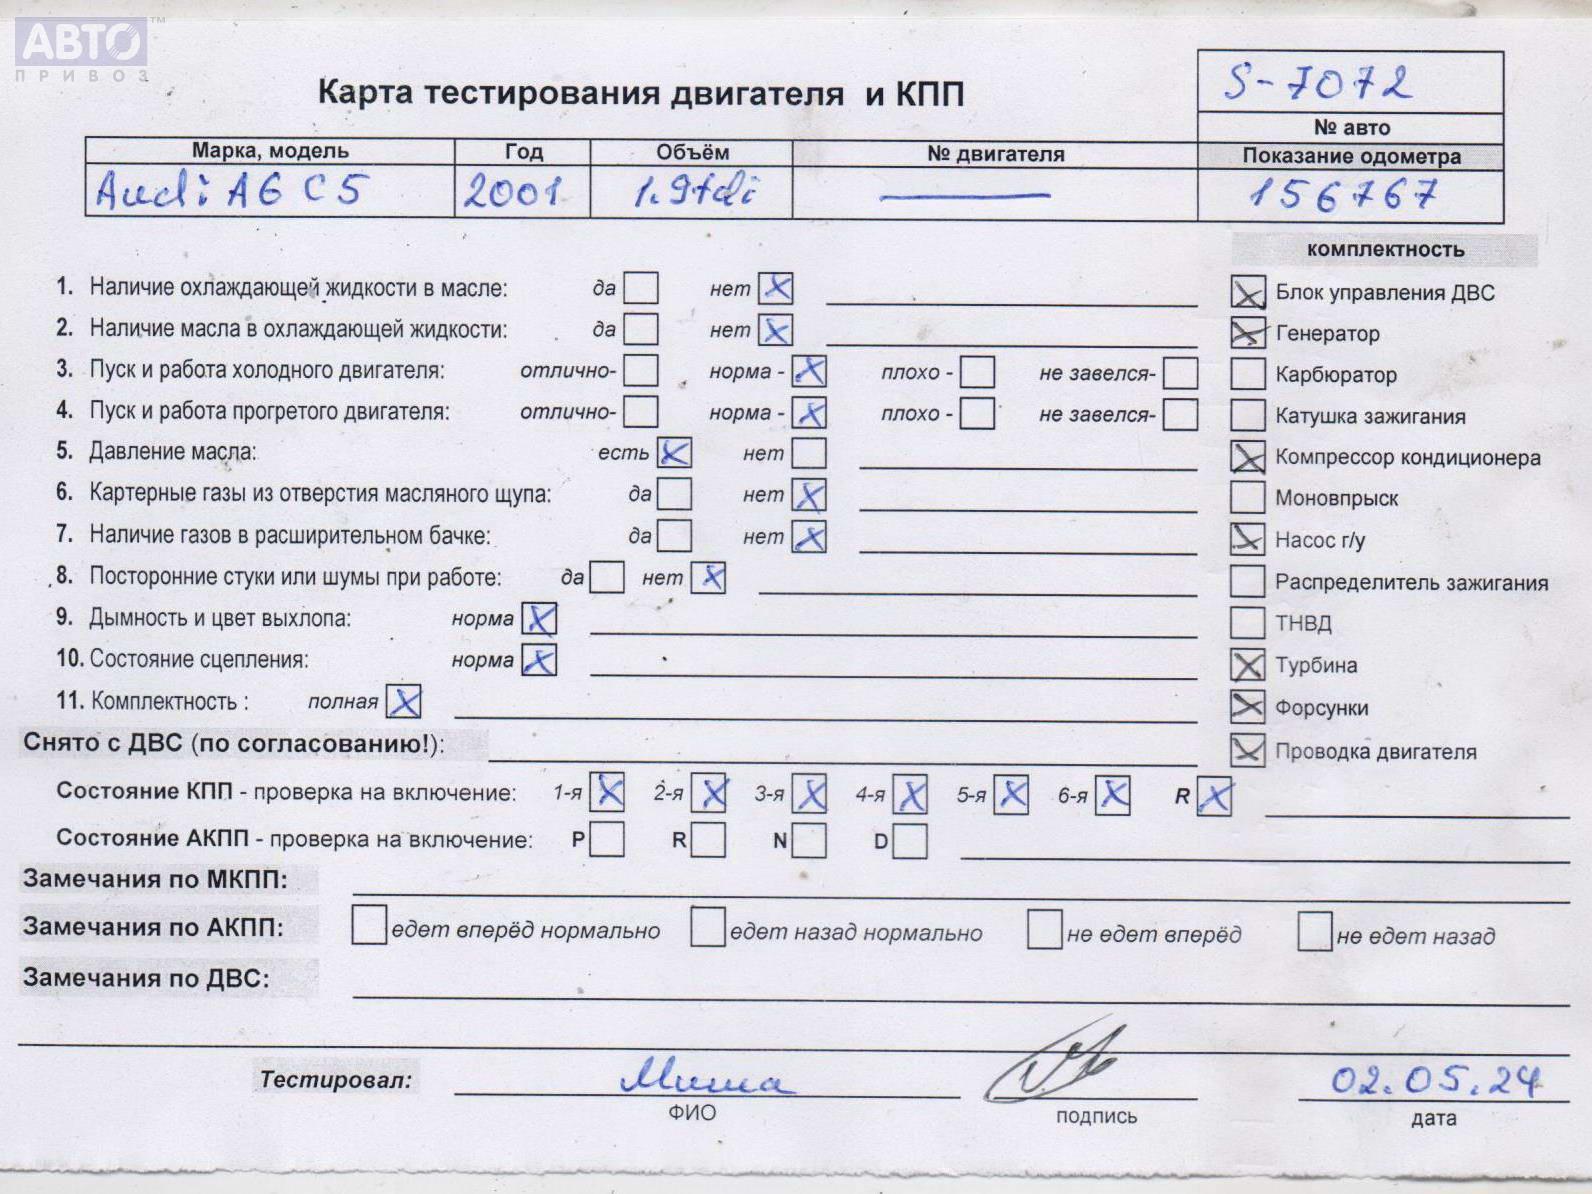 АВТО™
ПРИВОЗ
S-7072
Карта тестирования двигателя и КПП
№ авто
Марка, модель Год Объём № двигателя Показание одометра
Audi A6 C5 2001 1.9tdi — 156767
комплектность
1. Наличие охлаждающей жидкости в масле: да нет X
X Блок управления ДВС
2. Наличие масла в охлаждающей жидкости: да нет X
X Генератор
3. Пуск и работа холодного двигателя: отлично- норма - X плохо - не завелся-
Карбюратор
4. Пуск и работа прогретого двигателя: отлично- норма - X плохо - не завелся-
Катушка зажигания
5. Давление масла: есть X нет
X Компрессор кондиционера
6. Картерные газы из отверстия масляного щупа: да нет X
Моновпрыск
7. Наличие газов в расширительном бачке: да нет X
X Насос г/у
8. Посторонние стуки или шумы при работе: да нет X
Распределитель зажигания
9. Дымность и цвет выхлопа: норма X
ТНВД
10. Состояние сцепления: норма X
X Турбина
11. Комплектность : полная X
X Форсунки
Снято с ДВС (по согласованию!):
X Проводка двигателя
Состояние КПП - проверка на включение: 1-я X 2-я X 3-я X 4-я X 5-я X 6-я X R X
Состояние АКПП - проверка на включение: P R N D
Замечания по МКПП:
Замечания по АКПП: едет вперёд нормально едет назад нормально не едет вперёд не едет назад
Замечания по ДВС:
Тестировал: Миша 02.05.24
ФИО подпись дата